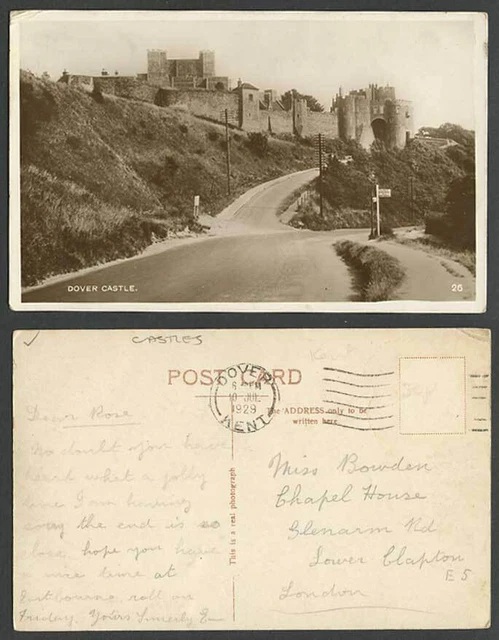 DOVER CASTLE.
26
CASTLES
Kent
POST CARD
DOVER
6 PM
10 JUL
1929
KENT
The ADDRESS only to be
written here
This is a real photograph
Dear Rose
No doubt you have
heard what a jolly
time I am having
sorry the end is so
close, hope you have
a nice time at
Eastbourne roll on
Friday. Yours Sincerely E
Miss Bowden
Chapel House
Glenarm Rd
Lower Clapton
E5
London